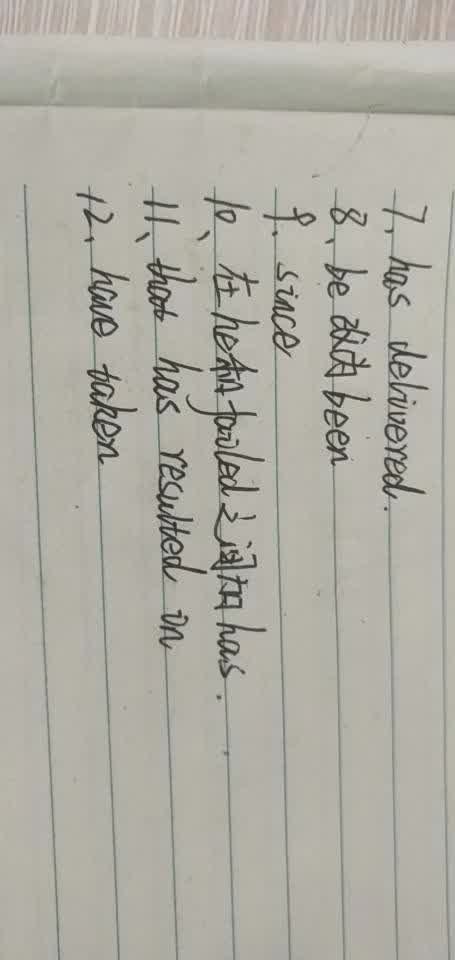 7、has delivered.
8、be改成been
9、since
10、在he和failed之间加has.
11、that has resulted in
12、have taken